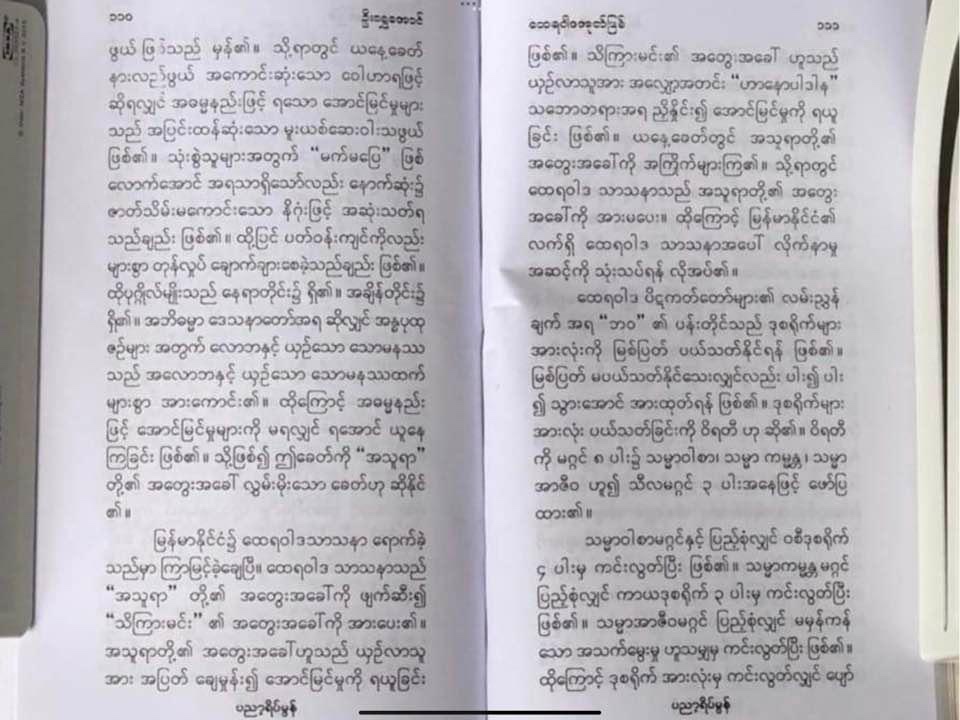 ၁၁၀ ဦးရွှေအောင်
ဖွယ် ဖြစ်သည် မှန်၏။ သို့ရာတွင် ယနေ့ခေတ်
နားလည်ဖွယ် အကောင်းဆုံးသော ဝေါဟာရဖြင့်
ဆိုရလျှင် အဓမ္မနည်းဖြင့် ရသော အောင်မြင်မှုများ
သည် အပြင်းထန်ဆုံးသော မူးယစ်ဆေးဝါးသဖွယ်
ဖြစ်၏။ သုံးစွဲသူများအတွက် “မက်မပြေ” ဖြစ်
လောက်အောင် အရသာရှိသော်လည်း နောက်ဆုံး၌
ဇာတ်သိမ်းမကောင်းသော နိဂုံးဖြင့် အဆုံးသတ်ရ
သည်ချည်း ဖြစ်၏။ ထို့ပြင် ပတ်ဝန်းကျင်ကိုလည်း
များစွာ တုန်လှုပ် ချောက်ချားစေခဲ့သည်ချည်း ဖြစ်၏။
ထိုပုဂ္ဂိုလ်မျိုးသည် နေရာတိုင်း၌ ရှိ၏။ အချိန်တိုင်း၌
ရှိ၏။ အဘိဓမ္မာ ဒေသနာတော်အရ ဆိုလျှင် အန္ဓပုထု
ဇဉ်များ အတွက် လောဘနှင့် ယှဉ်သော သောမနဿ
သည် အလောဘနှင့် ယှဉ်သော သောမနဿထက်
များစွာ အားကောင်း၏။ ထို့ကြောင့် အဓမ္မနည်း
ဖြင့် အောင်မြင်မှုများကို မရလျှင် ရအောင် ယူနေ
ကြခြင်း ဖြစ်၏။ သို့ဖြစ်၍ ဤခေတ်ကို “အသူရာ”
တို့၏ အတွေးအခေါ် လွှမ်းမိုးသော ခေတ်ဟု ဆိုနိုင်
၏။
မြန်မာနိုင်ငံ၌ ထေရဝါဒသာသနာ ရောက်ခဲ့
သည်မှာ ကြာမြင့်ခဲ့ချေပြီ။ ထေရဝါဒ သာသနာသည်
“အသူရာ” တို့၏ အတွေးအခေါ်ကို ဖျက်ဆီး၍
“သိကြားမင်း” ၏ အတွေးအခေါ်ကို အားပေး၏။
အသူရာတို့၏ အတွေးအခေါ်ဟူသည် ယှဉ်လာသူ
အား အပြတ် ချေမှုန်း၍ အောင်မြင်မှုကို ရယူခြင်း
ပညာ့ရိပ်မွန်
ထေရဝါဒအုတ်မြစ် ၁၁၁
ဖြစ်၏။ သိကြားမင်း၏ အတွေးအခေါ် ဟူသည်
ယှဉ်လာသူအား အလျှော့အတင်း “ဟာနောပါဒါန”
သဘောတရားအရ ညှိနှိုင်း၍ အောင်မြင်မှုကို ရယူ
ခြင်း ဖြစ်၏။ ယနေ့ခေတ်တွင် အသူရာတို့၏
အတွေးအခေါ်ကို အကြိုက်များကြ၏။ သို့ရာတွင်
ထေရဝါဒ သာသနာသည် အသူရာတို့၏ အတွေး
အခေါ်ကို အားမပေး။ ထို့ကြောင့် မြန်မာနိုင်ငံ၏
လက်ရှိ ထေရဝါဒ သာသနာအပေါ် လိုက်နာမှု
အဆင့်ကို သုံးသပ်ရန် လိုအပ်၏။
ထေရဝါဒ ပိဋကတ်တော်များ၏ လမ်းညွှန်
ချက် အရ “ဘဝ” ၏ ပန်းတိုင်သည် ဒုစရိုက်များ
အားလုံးကို မြစ်ပြတ် ပယ်သတ်နိုင်ရန် ဖြစ်၏။
မြစ်ပြတ် မပယ်သတ်နိုင်သေးလျှင်လည်း ပါး၍ ပါး
၍ သွားအောင် အားထုတ်ရန် ဖြစ်၏။ ဒုစရိုက်များ
အားလုံး ပယ်သတ်ခြင်းကို ဝိရတီ ဟု ဆို၏။ ဝိရတီ
ကို မဂ္ဂင် ၈ ပါး၌ သမ္မာဝါစာ၊ သမ္မာ ကမ္မန္တ၊ သမ္မာ
အာဇီဝ ဟူ၍ သီလမဂ္ဂင် ၃ ပါးအနေဖြင့် ဖော်ပြ
ထား၏။
သမ္မာဝါစာမဂ္ဂင်နှင့် ပြည့်စုံလျှင် ဝစီဒုစရိုက်
၄ ပါးမှ ကင်းလွတ်ပြီး ဖြစ်၏။ သမ္မာကမ္မန္တ မဂ္ဂင်
ပြည့်စုံလျှင် ကာယဒုစရိုက် ၃ ပါးမှ ကင်းလွတ်ပြီး
ဖြစ်၏။ သမ္မာအာဇီဝမဂ္ဂင် ပြည့်စုံလျှင် မမှန်ကန်
သော အသက်မွေးမှု ဟူသမျှမှ ကင်းလွတ်ပြီး ဖြစ်၏။
ထို့ကြောင့် ဒုစရိုက် အားလုံးမှ ကင်းလွတ်လျှင် ပျော်
ပညာ့ရိပ်မွန်